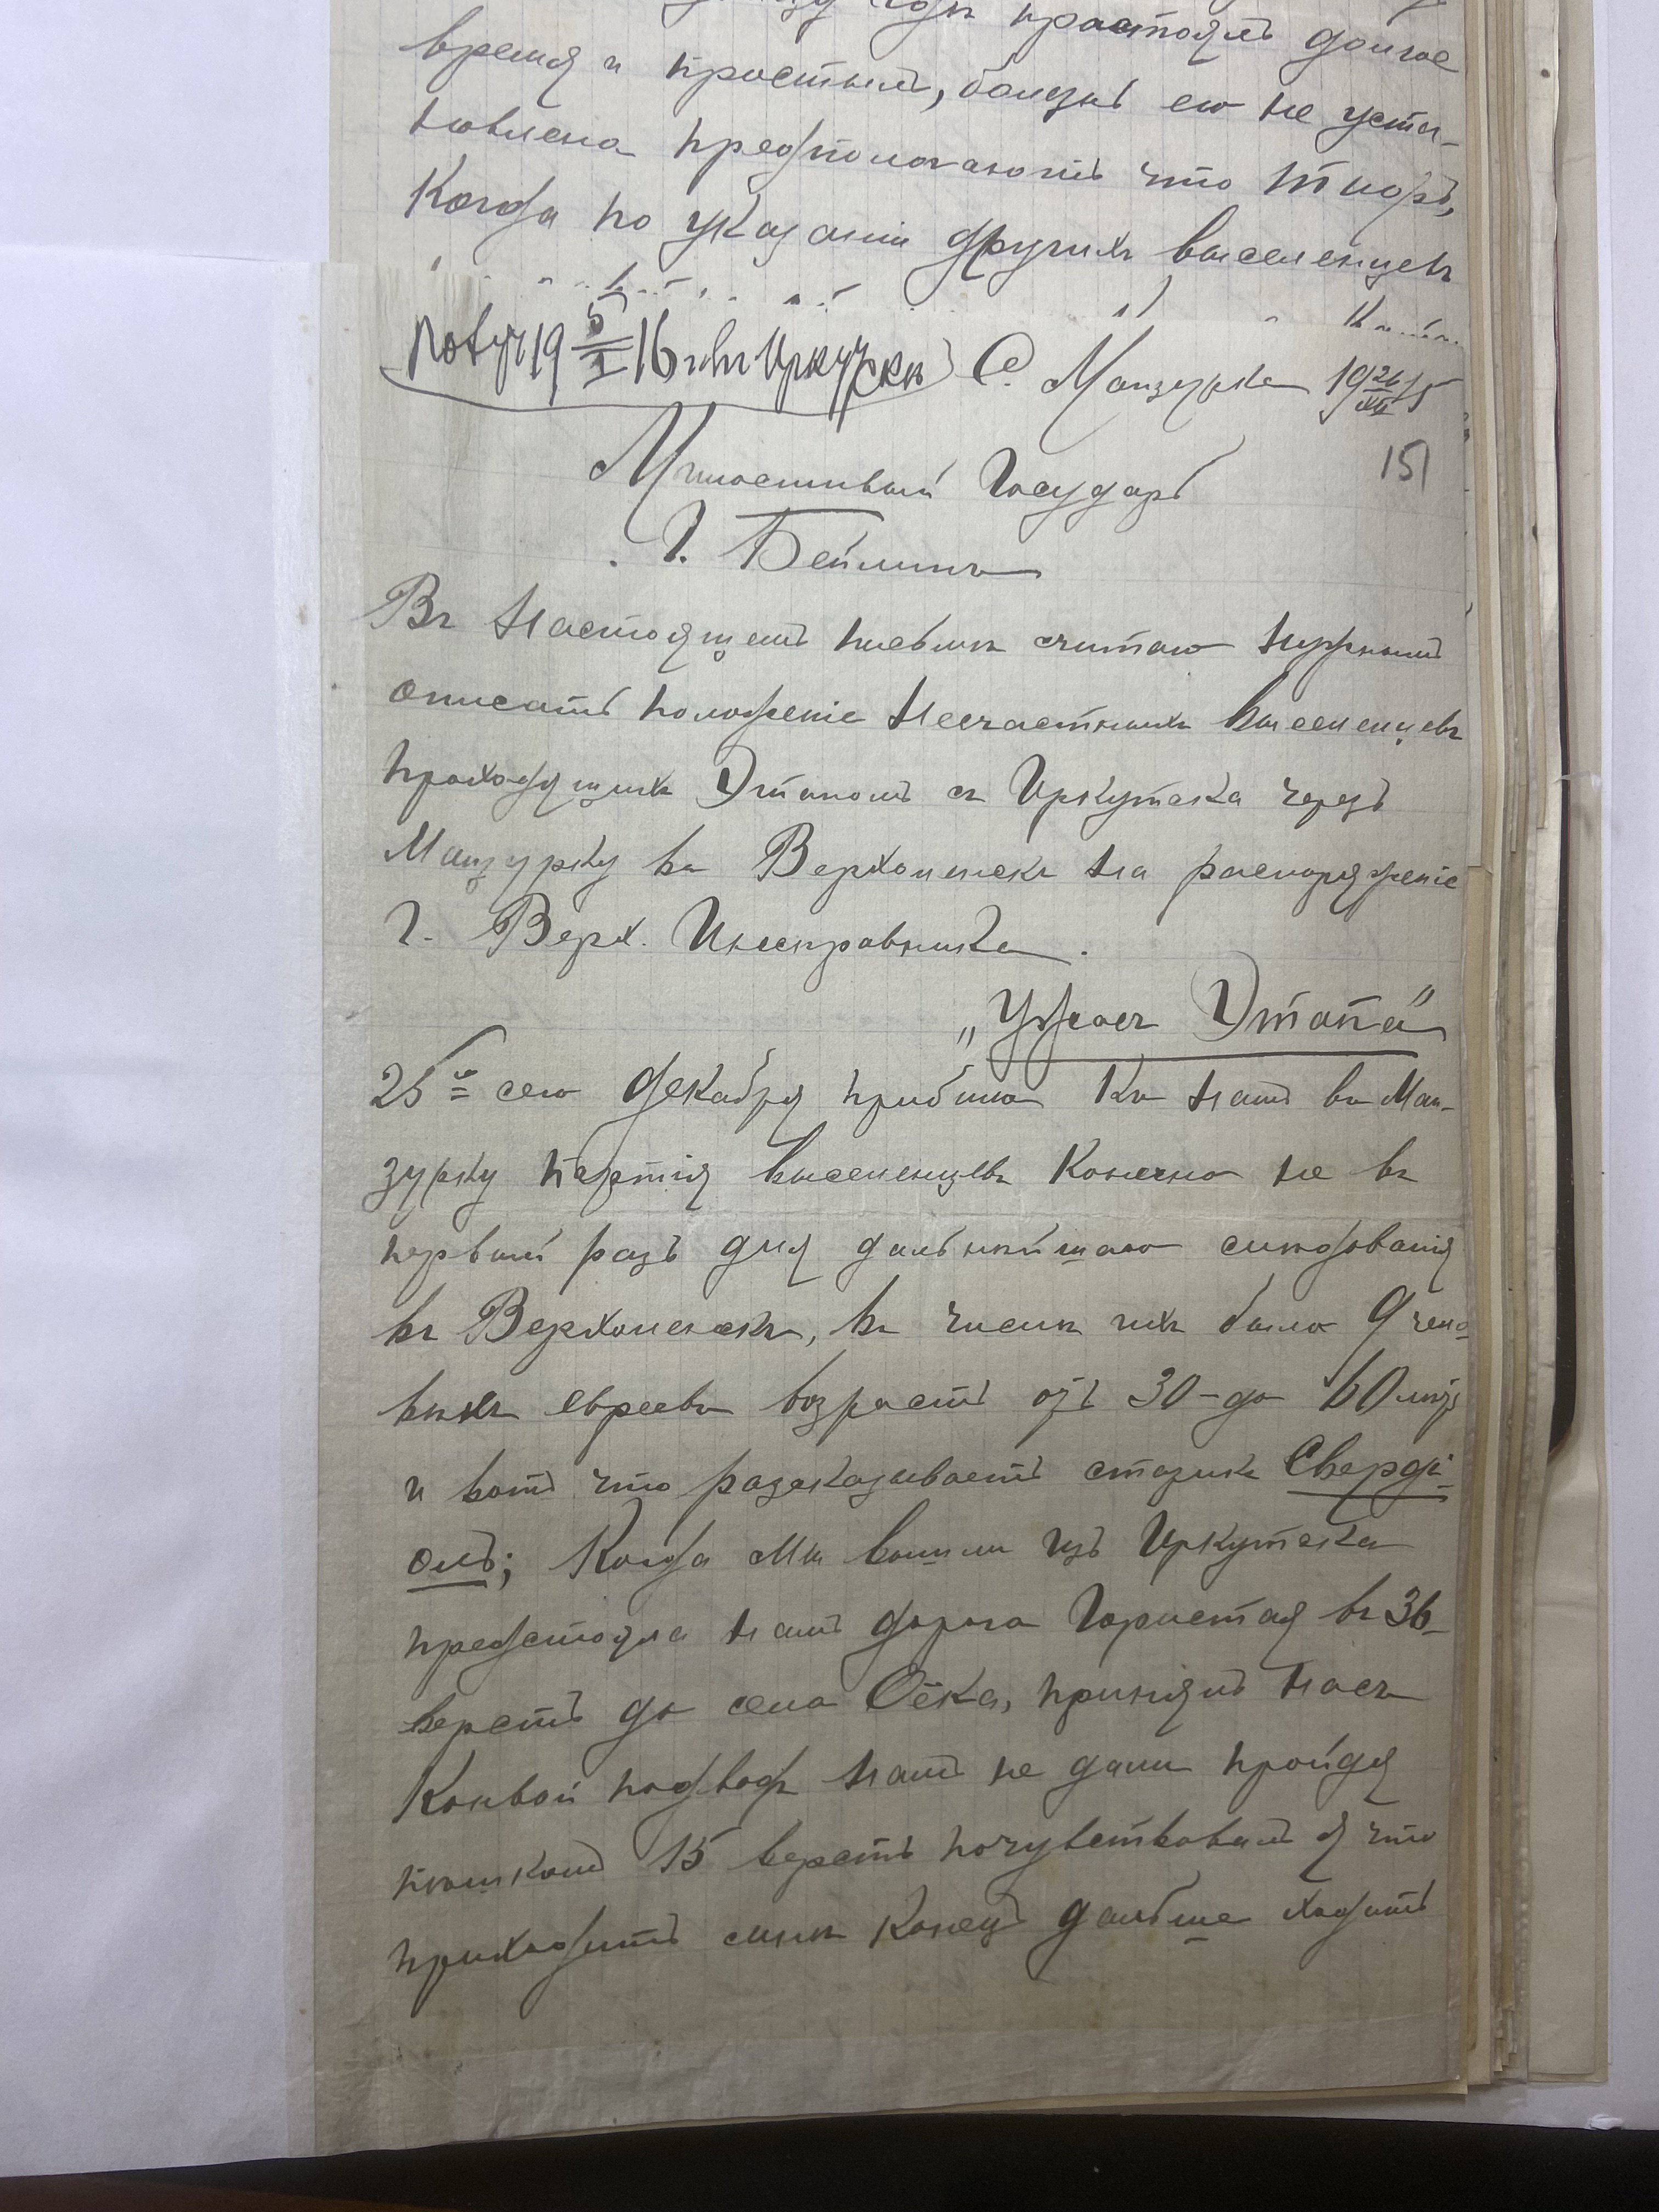 простоялъ долгое
время и простылъ, болезнь его не уста-
новлена предпологаютъ что тифъ,
Когда по указанiи другихъ выселенцевъ
Получ 19 5/I 16 г. въ Иркутскѣ С. Манзурка 19 26/XII 15
151
Милостивый Государь
Г. Бейлинъ
Въ настоящемъ письмѣ считаю нужнымъ
описать положенiе несчастныхъ выселенцевъ
проходящихъ Этапомъ съ Иркутска через
Манзурку въ Верхоленскъ на распоряженiе
Г. Верх. Исправника.
„Ужасъ Этапа"
25го сего декабря прибыла къ намъ въ Ман-
зурку партiя выселенцевъ конечно не въ
первый разъ для дальнѣйшаго слѣдованiя
въ Верхоленскъ, въ числѣ ихъ было 9 чело
вѣкъ евреевъ возрастъ отъ 30-до 60 лѣтъ
и вотъ что разсказываетъ старикъ Сверд-
олъ; Когда мы вышли изъ Иркутска
предстояла намъ дорога Гористая въ 36-
верстъ до села Оёка, принялъ насъ
Конвой подводъ намъ не дали пройдя
пѣшкомъ 15 верстъ почувствовалъ я что
приходитъ мнѣ конецъ дальше ходить